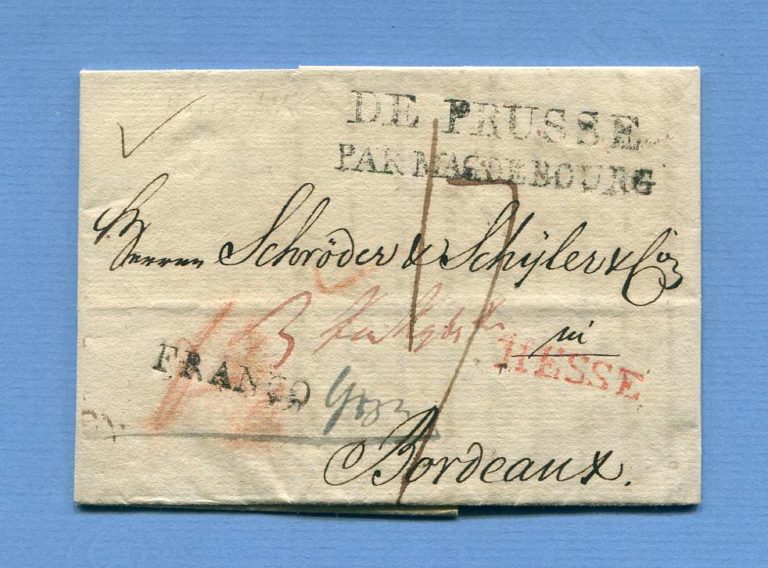 DE PRUSSE
PAR MAGDEBOURG
Herren Schröder & Schÿler & Co
17
in
HESSE
FRANCO
Bordeaux.